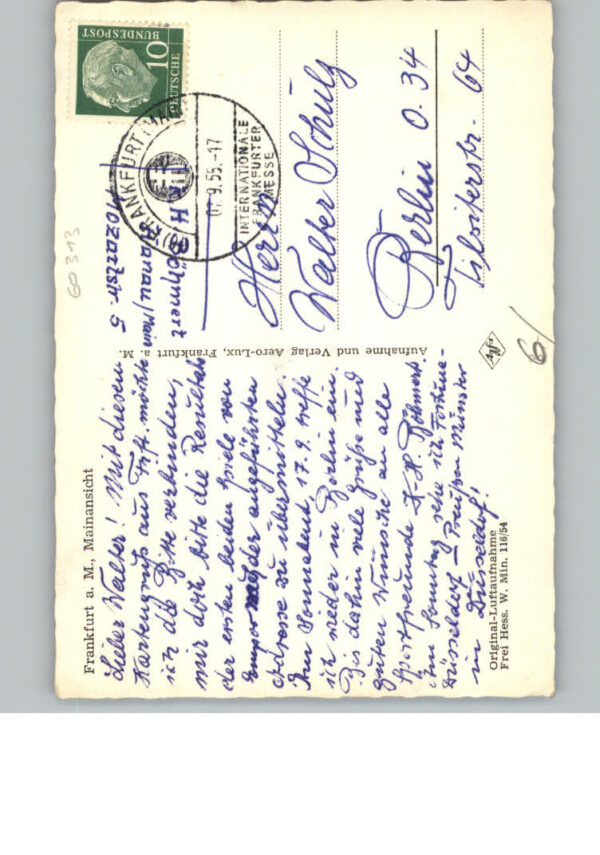 Frankfurt a. M., Mainansicht
Lieber Walter! Mit diesem
Kartengruß aus Frft. möchte
ich die Bitte verbinden,
mir doch bitte die Resultate
der ersten beiden Spiele von
der angeführten
Adresse zu übermitteln.
Am Sonnabend, 17.9. treffe
ich wieder in Berlin ein.
Bis dahin viele Grüße und
guten Wünsche an alle
Sportfreunde K.-H. Böhmert.
Am Sonntag sehe ich Fortuna-
Düsseldorf – Preußen Münster
in Düsseldorf!
Original-Luftaufnahme
Frei Hess. W. Min. 116/54
Aufnahme und Verlag Aero-Lux, Frankfurt a. M.
Agfa
DEUTSCHE
BUNDESPOST
10
FRANKFURT (MAIN)
9.55.-17
INTERNATIONALE
FRANKFURTER
MESSE
K. H. Böhmert
Hanau/Main
Mozartstr. 5
Herrn
Walter Schulz
Berlin O. 34
Tilsiterstr. 64
60313
6/